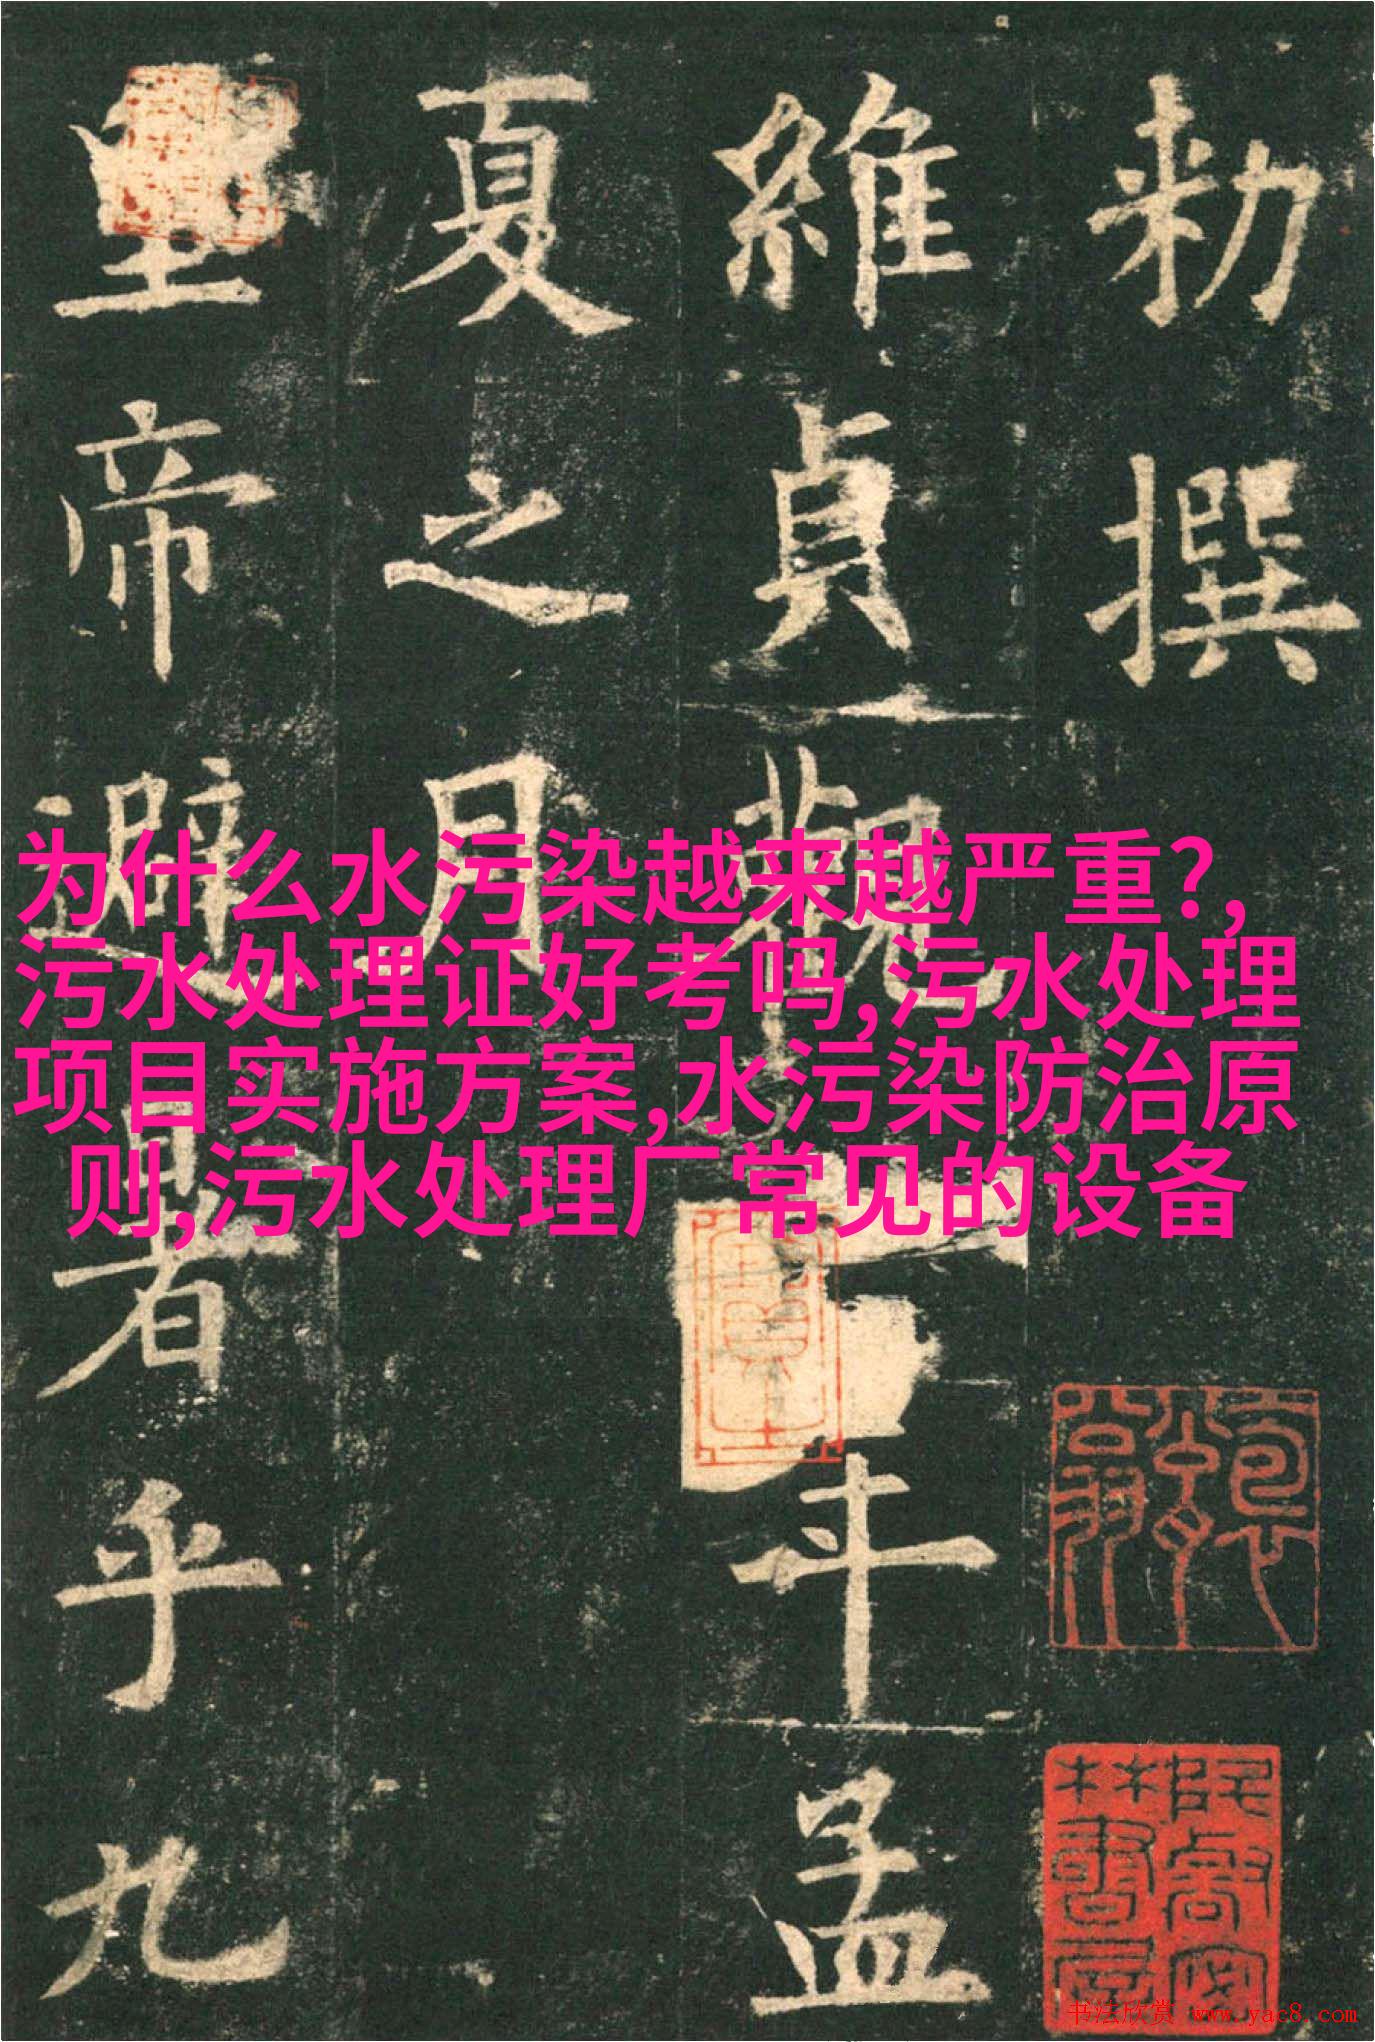 敕撰
維貞觀六年孟
夏之月
皇帝避暑者乎九
为什么水污染越来越严重?,
污水处理证好考吗,污水处理
项目实施方案,水污染防治原
则,污水处理厂常见的设备
书法欣赏 www.yac8.com